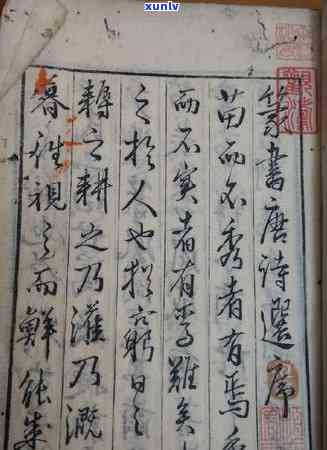 xunlv
篆書唐詩選序
苗而不秀者有焉秀
而不實者有焉難矣
之於人也猶日之
耨之耕之乃灌乃溉
暮往視之而鮮能成